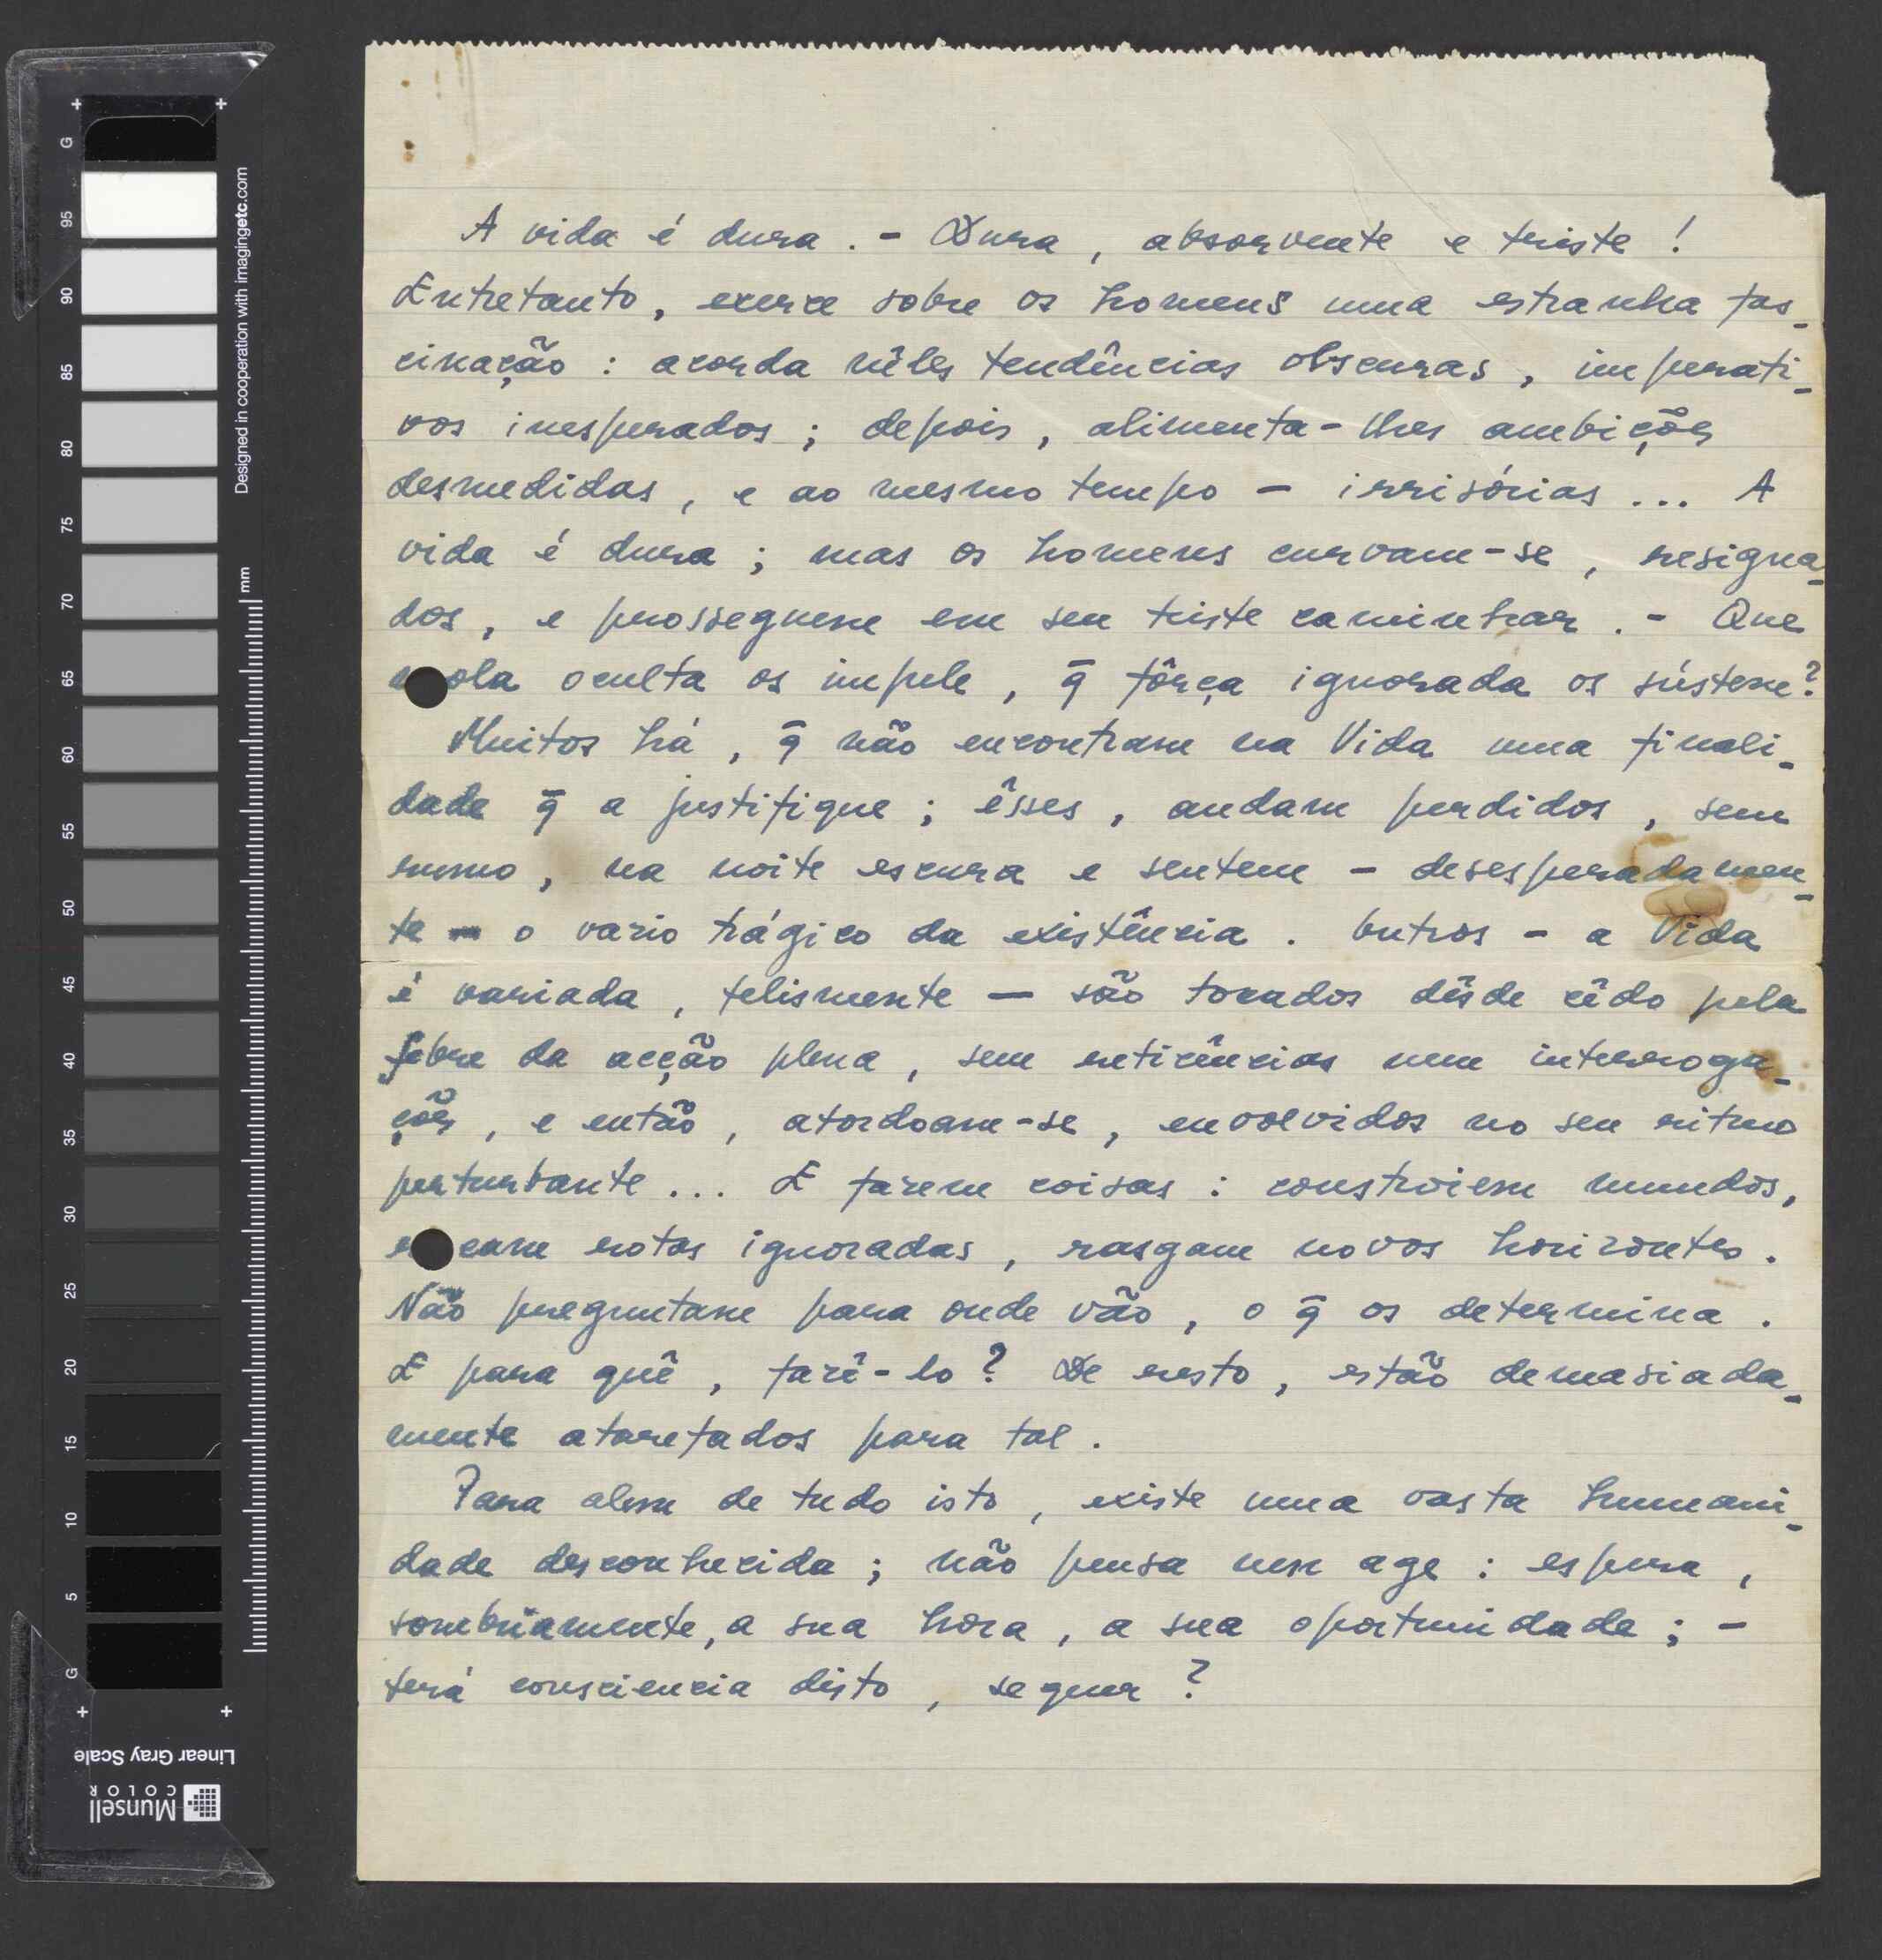 A vida é dura. - Dura, absorvente e triste!
Entretanto, exerce sobre os homens uma estranha fas-
cinação: acorda nêles tendências obscuras, imperati-
vos inesperados; depois, alimenta-lhes ambições
desmedidas, e ao mesmo tempo - irrisórias... A
vida é dura; mas os homens curvam-se, resigna-
dos, e prosseguem em seu triste caminhar. - Que
mola oculta os impele, q̄ fôrça ignorada os sústem?
Muitos há, q̄ não encontram na Vida uma finali-
dade q̄ a justifique; êsses, andam perdidos, sem
rumo, na noite escura e sentem - desesperadamen-
te - o vario trágico da existência. Outros - a Vida
é variada, felismente - são tocados dêsde cêdo pela
febre da acção plena, sem reticências nem interroga-
ções, e então, atordoam-se, envolvidos no seu ritmo
perturbante... E fazem coisas: constroiem mundos,
cam rotas ignoradas, rasgam novos horizontes.
Não preguntam para onde vão, o q̄ os determina.
E para quê, fazê-lo? De resto, estão demasiada-
mente atarefados para tal.
Para alem de tudo isto, existe uma vasta humani-
dade desconhecida; não pensa nem age: espera,
sombriamente, a sua hora, a sua oportunidade; -
terá consciencia disto, sequer?
Designed in cooperation with imagingetc.com
mm
G
95
90
85
80
75
70
65
60
55
50
45
40
35
30
25
20
15
10
5
G
Linear Gray Scale
Munsell
COLOR